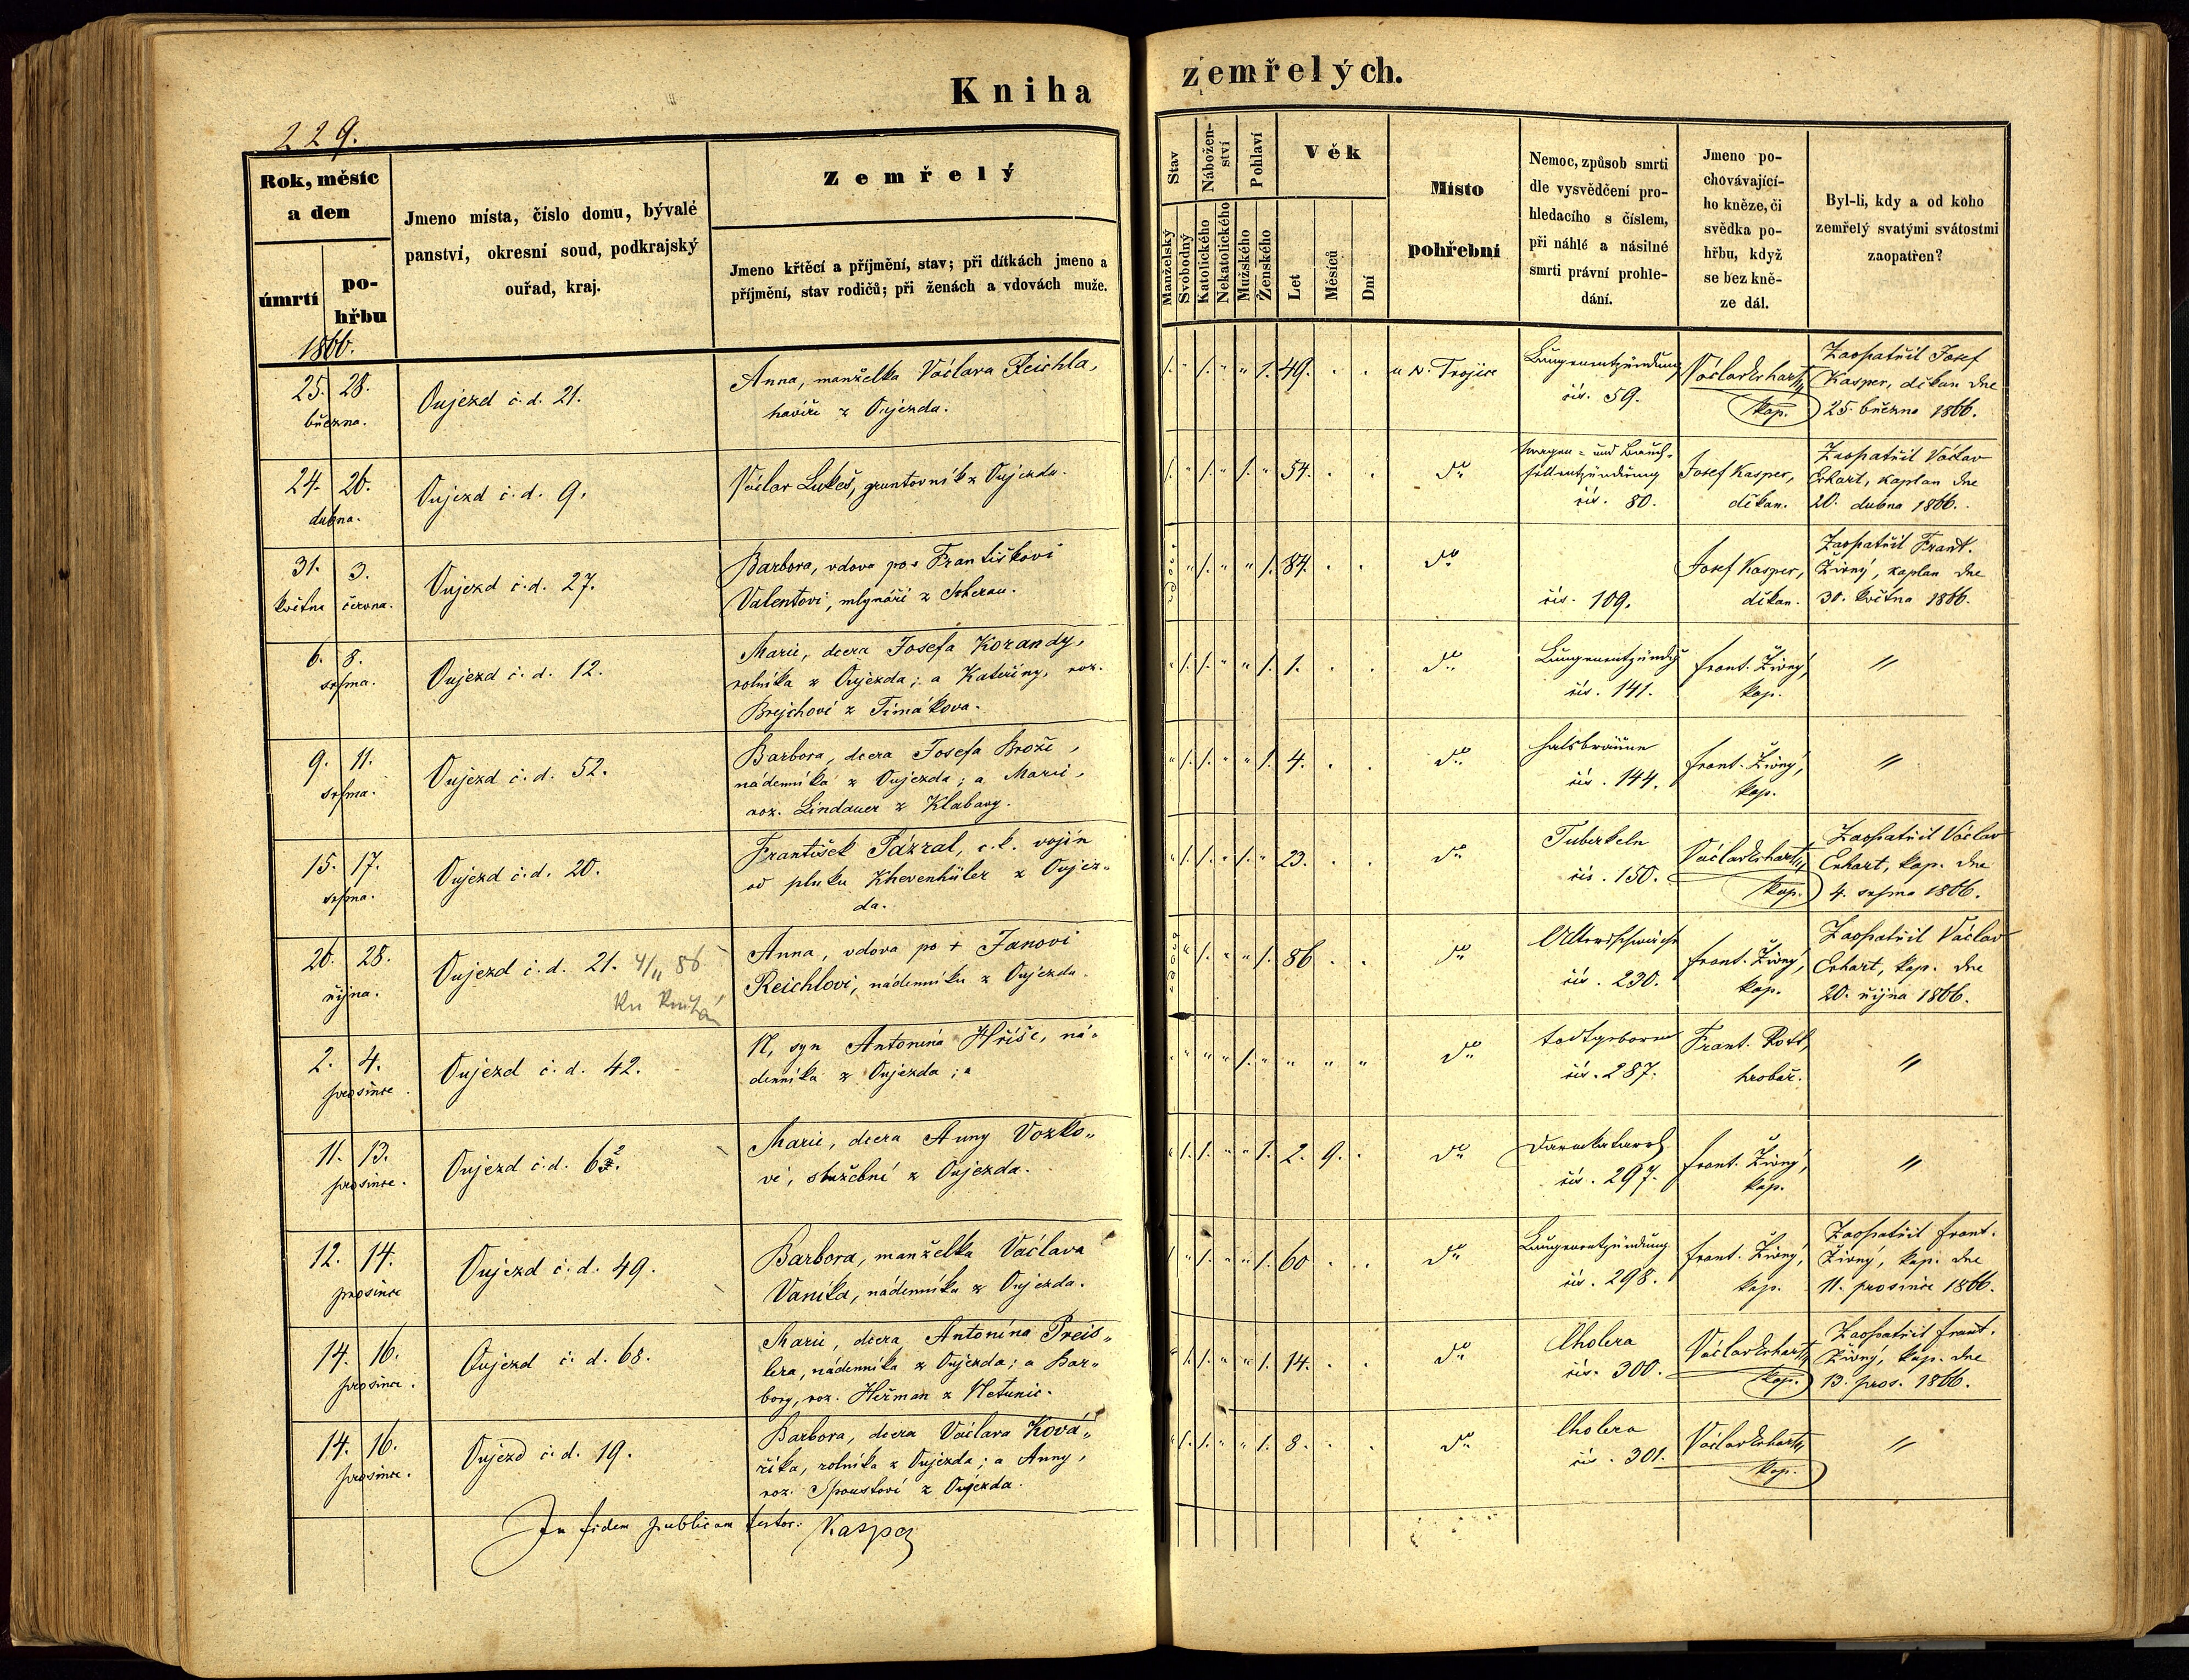 Kniha zemřelých.
229.
Rok, měsíc a den
úmrtí
pohřbu
Jmeno místa, číslo domu, bývalé
panství, okresní soud, podkrajský
ouřad, kraj.
Zemřelý
Jmeno křtěcí a příjmění, stav; při dítkách jmeno a
příjmění, stav rodičů; při ženách a vdovách muže.
Stav
Manželský
Svobodný
Náboženství
Katolického
Nekatolického
Pohlaví
Mužského
Ženského
Věk
Let
Měsíců
Dní
Místo
pohřební
Nemoc, způsob smrti
dle vysvědčení pro-
hledacího s číslem,
při náhlé a násilné
smrti právní prohle-
dání.
Jmeno po-
chovávající-
ho kněze, či
svědka po-
hřbu, když
se bez kně-
ze dál.
Byl-li, kdy a od koho
zemřelý svatými svátostmi
zaopatřen?
1866.
25. 28.
března.
Oujezd č. d. 21.
Anna, manželka Václava Reichla,
havíře z Oujezda.
1. " 1. " " 1. 49. . .
u N. Trojice
Lungenentzündung
čís. 59.
Václav Erhart,
kap.
Zaopatřil Josef
Kasper, děkan dne
25. března 1866.
24. 26.
dubna.
Oujezd č. d. 9.
Václav Lukeš, gruntovník z Oujezda.
1. " 1. " 1. " 54. . .
dto
Magen- und Bauch-
fellentzündung
čís. 80.
Josef Kasper,
děkan.
Zaopatřil Václav
Erhart, kaplan dne
20. dubna 1866.
31. 3.
května června.
Oujezd č. d. 27.
Barbora, vdova po + Františkovi
Valentovi, mlynáři z
vdova " 1. " " 1. 84. . .
dto
čís. 109.
Josef Kasper,
děkan.
Zaopatřil Frant.
Živný, kaplan dne
30. května 1866.
6. 8.
srpna.
Oujezd č. d. 12.
Marie, dcera Josefa Korandy,
rolníka z Oujezda; a Kateřiny, roz.
Brejchoví z Timákova.
" 1. 1. " " 1. 1. . .
dto
Lungenentzündg
čís. 141.
Frant. Živný,
kap.
"
9. 11.
srpna.
Oujezd č. d. 52.
Barbora, dcera Josefa Brože,
nádenníka z Oujezda; a Marie,
roz. Lindauer z Klabavy.
" 1. 1. " " 1. 4. . .
dto
Halsbräune
čís. 144.
Frant. Živný,
kap.
"
15. 17.
srpna.
Oujezd č. d. 20.
František Pázral, c. k. vojín
od pluku Khevenhüler z Oujez-
da.
" 1. 1. " 1. " 23. . .
dto
Tuberkeln
čís. 150.
Václav Erhart,
kap.
Zaopatřil Václav
Erhart, kap. dne
4. srpna 1866.
26. 28.
října.
Oujezd č. d. 21. 4/11 86
Anna, vdova po + Janovi
Reichlovi, nádenníku z Oujezda.
vdova " 1. " " 1. 86 . .
dto
Altersschwäche
čís. 230.
Frant. Živný,
kap.
Zaopatřil Václav
Erhart, kap. dne
20. října 1866.
2. 4.
prosince.
Oujezd č. d. 42.
N, syn Antonína Hříše, ná-
denníka z Oujezda; a
" " " " 1. " " " "
dto
todtgeboren
čís. 287.
Frant. Rott,
hrobař.
"
11. 13.
prosince.
Oujezd č. d. 62.
Marie, dcera Anny Vozko-
vé, služební z Oujezda.
" 1. 1. " " 1. 2. 9. .
dto
Darmkatarrh
čís. 297.
Frant. Živný,
kap.
"
12. 14.
prosince
Oujezd č. d. 49.
Barbora, manželka Václava
Vaníka, nádenníka z Oujezda.
1 " 1. " " 1. 60 . .
dto
Lungenentzündung
čís. 298.
Frant. Živný,
kap.
Zaopatřil Frant.
Živný, kap. dne
11. prosince 1866.
14. 16.
prosince.
Oujezd č. d. 68.
Marie, dcera Antonína Preis-
lera, nádenníka z Oujezda; a Bar-
bory, roz. Heřman z Netunic.
" 1. 1. " " 1. 14. . .
dto
Cholera
čís. 300.
Václav Erhart,
kap.
Zaopatřil Frant.
Živný, kap. dne
13. pros. 1866.
14. 16.
prosince.
Oujezd č. d. 19.
Barbora, dcera Václava Ková-
říka, rolníka z Oujezda; a Anny,
roz. Spoustoví z Oujezda.
" 1. 1. " " 1. 8. . .
dto
Cholera
čís. 301.
Václav Erhart,
kap.
"
In fidem publicam testor: Kasper